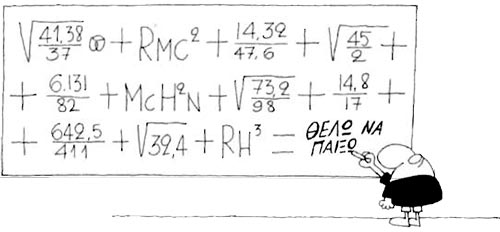 √(41,38/37) + RMC² + 14,32/47,6 + √(45/2) +
+ 6.131/82 + McH²N + √(73,2/98) + 14,8/17 +
+ 642,5/411 + √32,4 + RH³ = ΘΕΛΩ ΝΑ
ΠΑΙΞΩ